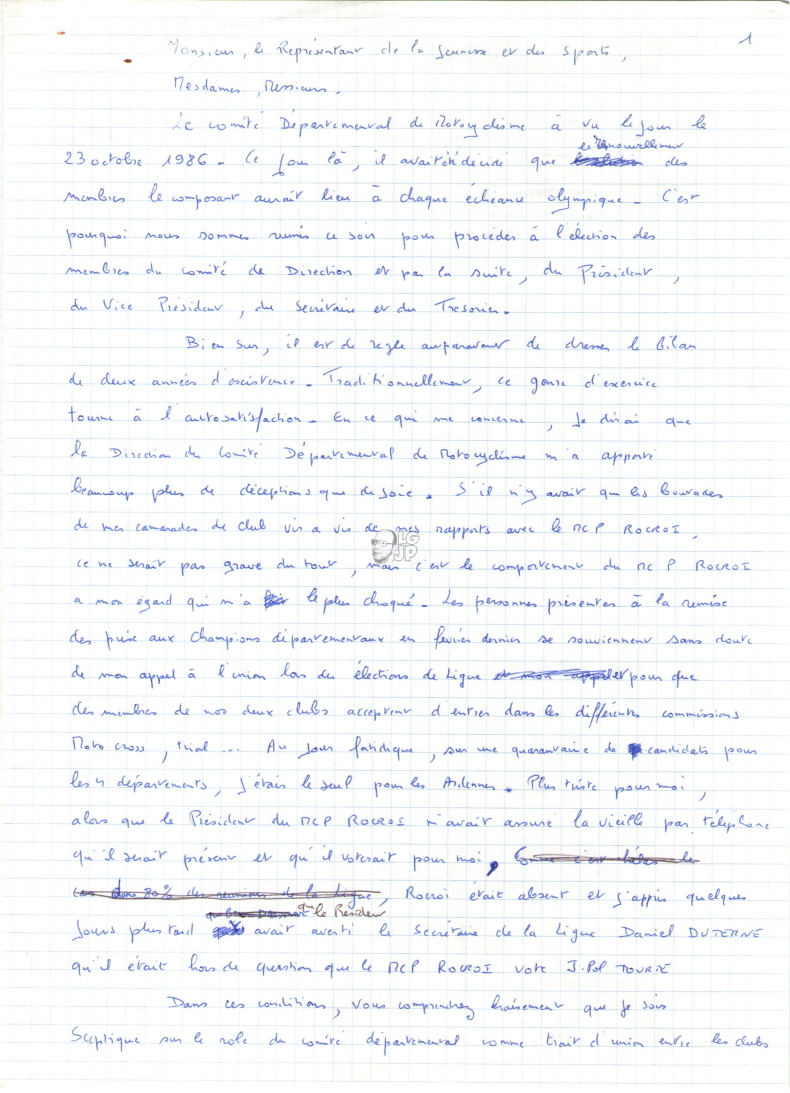 1
Monsieur, le Représentant de la Jeunesse et des Sports,
Mesdames, Messieurs.
Le comité Départemental de Motocyclisme à vu le jour le
le renouvellement
23 octobre 1986 - Ce jour là, il avait été décidé que des
membres le composant aurait lieu à chaque échéance olympique - C'est
pourquoi nous sommes réunis ce soir pour procéder à l'élection des
membres du comité de Direction et par la suite, du Président,
du Vice Président, du Secrétaire et du Tresorier.
Bien sur, il est de regle auparavant de dresser le bilan
de deux années d'existence - Traditionnellement, ce genre d'exercice
tourne à l'autosatisfaction - En ce qui me concerne, je dirai que
la Direction du Comité Départemental de Motocyclisme m'a apporté
beaucoup plus de déceptions que de joie. S'il n'y avait que les boutades
de mes camarades de club vis a vis de mes rapports avec le MCP ROCROI,
LG
JP
ce ne serait pas grave du tout, mais c'est le comportement du MCP ROCROI
a mon égard qui m'a le plus choqué - Les personnes présentes à la remise
des prix aux Champions départementaux en février dernier se souviennent sans doute
de mon appel à l'union lors des élections de Ligue et mon appel pour que
des membres de nos deux clubs acceptent d'entrer dans les différentes commissions
Moto cross, trial... Au jour fatidique, sur une quarantaine de candidats pour
les 4 départements, j'étais le seul pour les Ardennes. Plus triste pour moi,
alors que le Président du MCP ROCROI m'avait assuré la vieille par téléphone
qu'il serait présent et qu'il voterait pour moi, le
cas dans 80% des reunions de la Ligue, Rocroi était absent et j'appris quelques
que le Président
jours plus tard avait averti le Secrétaire de la Ligue Daniel DUTERNE
qu'il était hors de question que le MCP ROCROI vote J.Pol TOURTE
Dans ces conditions, vous comprendrez aisement que je sois
Sceptique sur le role du comité départemental comme trait d'union entre les clubs